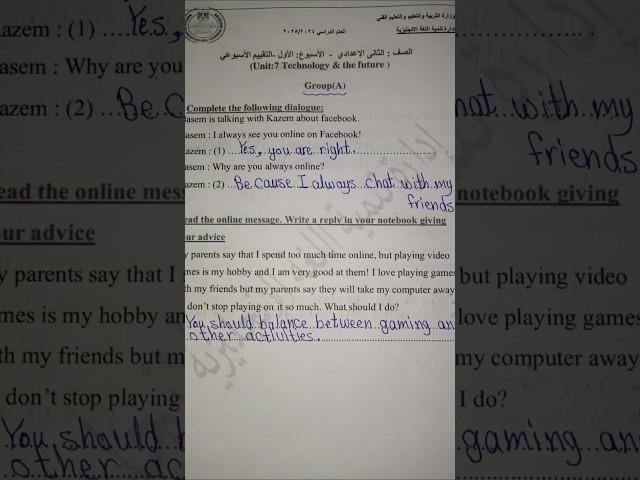 وزارة التربية والتعليم والتعليم الفني
إدارة تنمية اللغة الانجليزية
العام الدراسي ٢٠٢٥/٢٠٢٤
الصف : الثانى الإعدادي - الأسبوع: الأول -التقييم الأسبوعي
(Unit:7 Technology & the future )
Group(A)
Complete the following dialogue:
asem is talking with Kazem about facebook.
asem : I always see you online on Facebook!
azem : (1) ...Yes, you are right.
asem : Why are you always online?
azem : (2) ..Be cause I always chat with my
friends
ead the online message. Write a reply in your notebook giving
ur advice
y parents say that I spend too much time online, but playing video
mes is my hobby and I am very good at them! I love playing games
th my friends but my parents say they will take my computer away
don't stop playing on it so much. What should I do?
You should balance between gaming an
other activities.